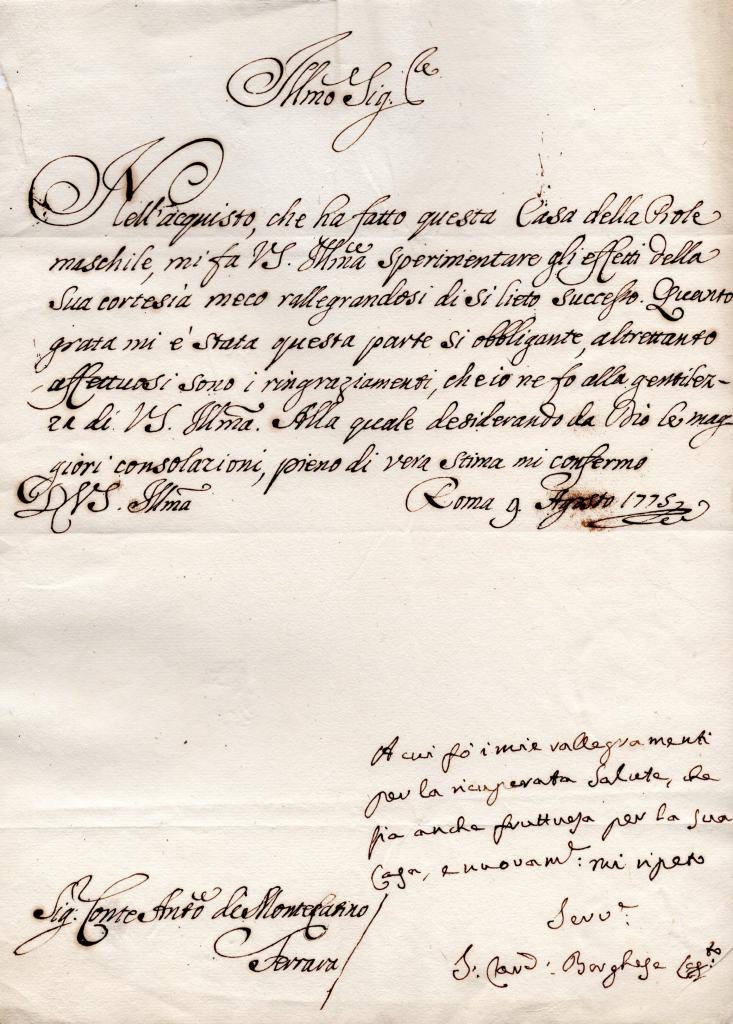 Illmo Sig.re
Nell'acquisto, che ha fatto questa Casa della Prole
maschile, mi fa VS. Illma sperimentare gli effetti della
sua cortesia meco rallegrandosi di si lieto successo. Quanto
grata mi è stata questa parte si obbligante, altrettanto
affettuosi sono i ringraziamenti, che io ne fo alla gentilez-
za di VS. Illma. Alla quale desiderando da Dio le mag-
giori consolazioni, pieno di vera stima mi confermo
D VS. Illma Roma 9 Agosto 1775
A cui fò i miei rallegramenti
per la ricuperata salute, che
sia anche fruttuosa per la sua
Casa, e nuovam.e: mi ripeto
Serv.e
S: Card: Borghese
Sig.r Conte Anto de Montecatino
Ferrara